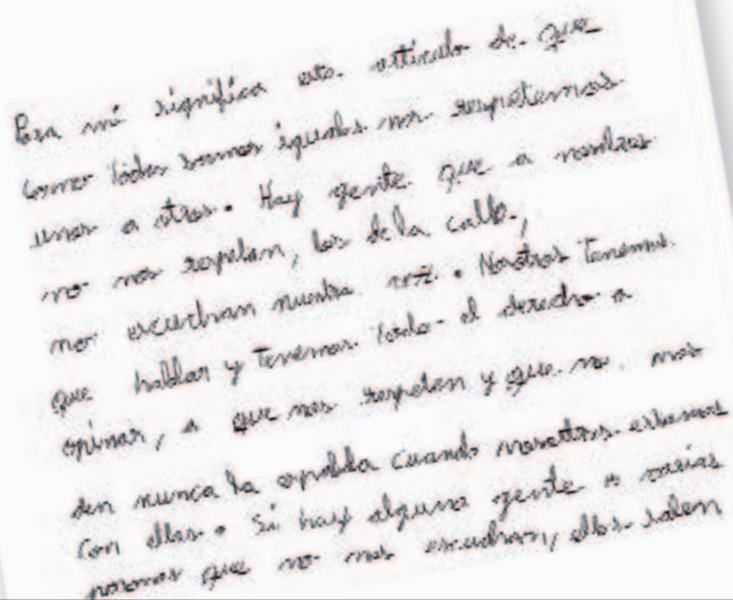 Para mi significa este artículo de que
como todos somos iguales nos respetemos
unos a otros. Hay gente que a nosotros
no nos respetan, los de la calle,
nos escuchan nuestra voz. Nosotros tenemos
que hablar y tenemos todo el derecho a
opinar, a que nos respeten y que no nos
den nunca la espalda cuando nosotros estamos
con ellos. Si hay alguna gente o varias
personas que no nos escuchan, ellos salen